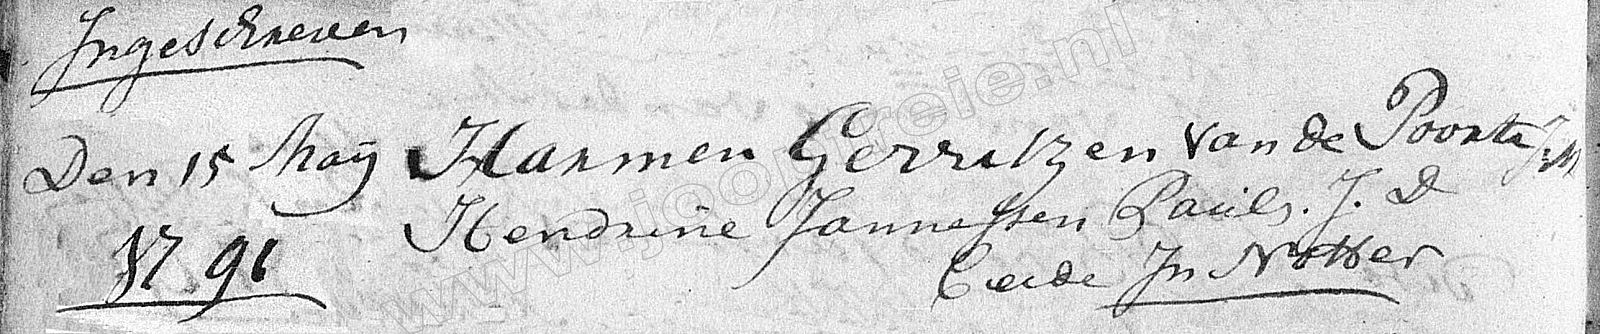 Ingeschreven
Den 15 Maÿ Harmen Gerritzen van de Poorte J.M
Hendrine Jannessen Pauls. J. D
1791
Beide In Notter
www.jooptreie.nl